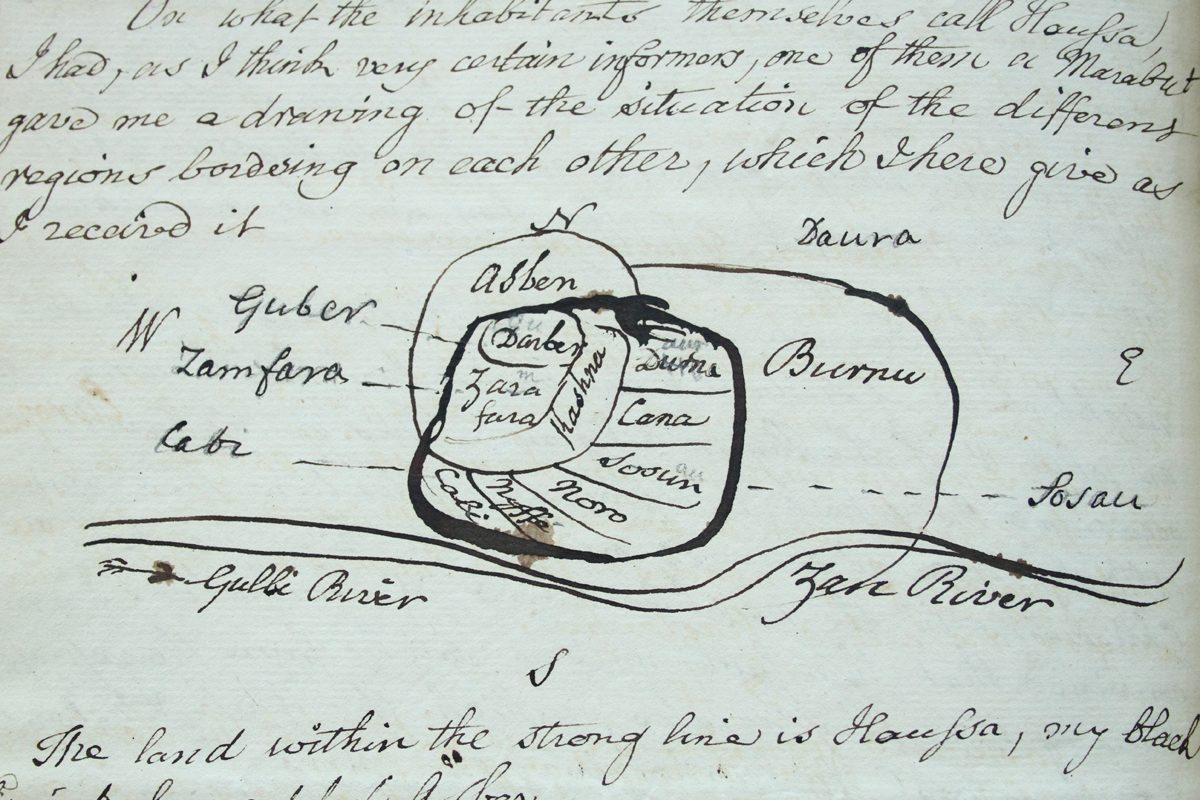 On what the inhabitants themselves call Haussa,
I had, as I think very certain informers, one of them a Marabut
gave me a drawing of the situation of the different
regions bordering on each other, which I here give as
I received it
N
Daura
Asben
W
Guber
Darber
Kashna
Dume
Burnu
E
Zamfara
Zara
fara
Cana
Cabi
Sooun
Cabi
Nyffe
Noro
Sosau
Gulbi River
Zan River
S
The land within the strong line is Haussa, my black